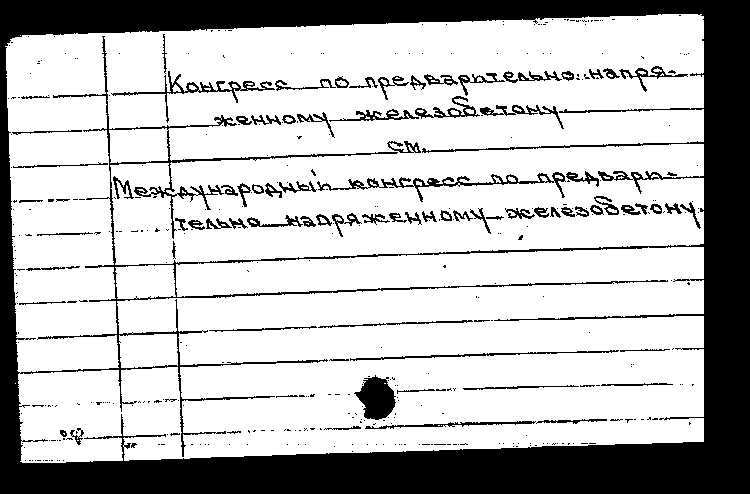 Конгресс по предварительно напря-
женному железобетону.
см.
Международный конгресс по предвари-
тельно напряженному железобетону.